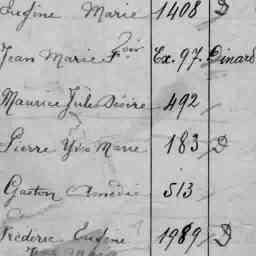 Eugène Marie 1408 D
Jean Marie Fois Ex. 97. Dinard
Maurice Jule Désiré 492
Pierre Yves Marie 183 D
Gaston Amédée 513
Frédéric Eugène 1989 D